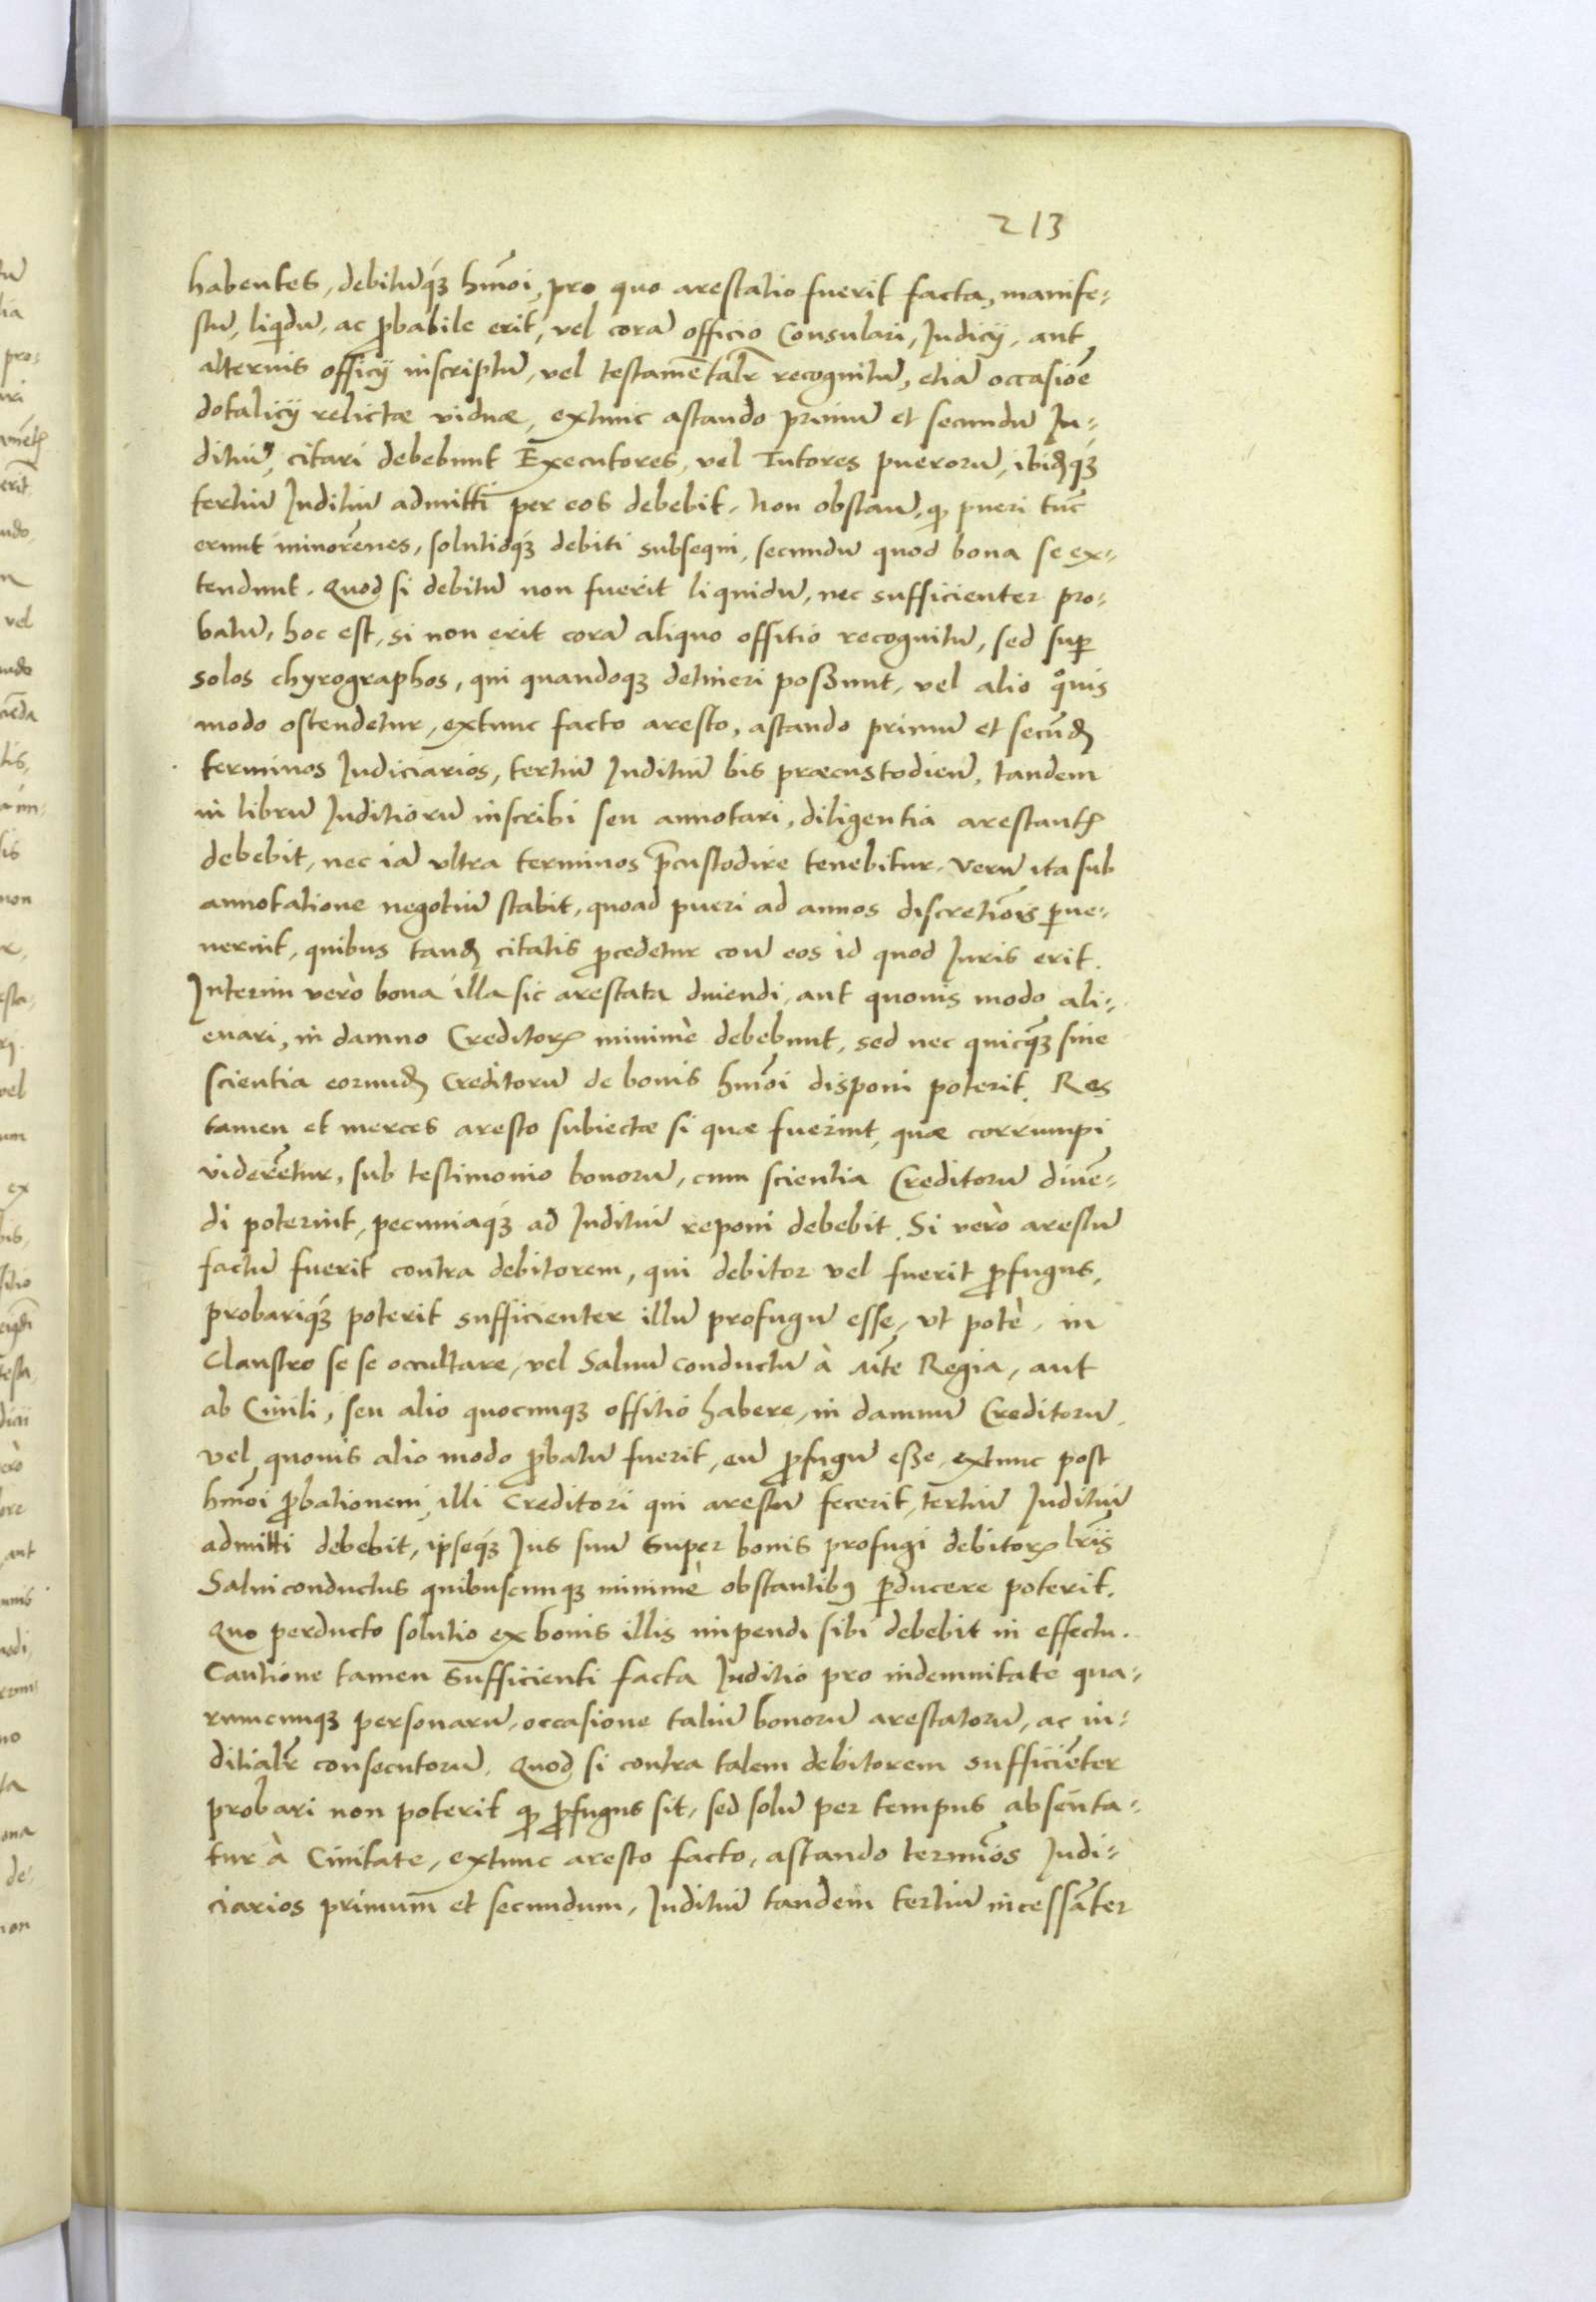 213
habentes, debitūq́ꝫ hmōi, pro quo arestatio fuerit facta, manife-
stū, liqͥdū, ac ꝓbabile erit, vel corā officio Consulari, Judicij, aut
alterius officij inscriptū, vel testamētalr̄ recognitū, etiā occasiōe
dotalicij relictæ viduæ, extunc astando primū et secundū Iu-
ditiū, citari debebunt Executores, vel Tutores puerorū, ibidꝫq́ꝫ
tertiū Juditiū admitti per eos debebit. Non obstan̄, qp pueri tūc
erunt minorēnes, solutioq́ꝫ debiti subsequi, secundū quod bona se ex-
tendunt. Quod si debitū non fuerit liquidū, nec sufficienter pro-
batū, hoc est, si non erit corā aliquo offitio recognitū, sed suꝑ
solos chyrographos, qui quandoqꝫ detineri possunt, vel alio qͦuis
modo ostendetur, extunc facto aresto, astando primū et secūdꝫ
terminos Judiciarios, tertiū Juditiū bis præcustodien̄, tandem
in librū Juditiorū inscribi seu annotari, diligentia arestantꝭ
debebit, nec iā vltra terminos p̄custodire tenebitur. Verū ita sub
annotatione negotiū stabit, quoad pueri ad annos discretiōis ꝑue-
nerint, quibus tandꝫ citatis ꝓcedetur con̄ eos id quod Juris erit.
Interim verò bona illa sic arestata diuendi, aut quouis modo ali-
enari, in damno Creditorꝝ minimè debebunt, sed nec quicqꝫ sine
scientia eorundꝫ Creditorū de bonis hmōi disponi poterit. Res
tamen et merces aresto subiectæ si quæ fuerint, quæ corrumpi
viderētur, sub testimonio bonorū, cum scientia Creditorū diuē-
di poterint, pecuniaq́ꝫ ad Juditiū reponi debebit. Si verò arestū
factū fuerit contra debitorem, qui debitor vel fuerit ꝓfugus,
probariq́ꝫ poterit sufficienter illū profugū esse, vt potè, in
Claustro se se occultare, vel Saluū conductū à Mte Regia, aut
ab Ciuili, seu alio quocunqꝫ offitio habere, in damnū Creditorū,
vel quouis alio modo ꝓbatū fuerit, eū ꝓfugū esse, extunc post
hmōi ꝓbationem, illi Creditori qui arestū fecerit, tertiū Juditiū
admitti debebit, ipseq́ꝫ Jus suū super bonis profugi debitorꝭ lr̄is
Saluiconductus quibuscunqꝫ minimè obstantibꝰ ꝑducere poterit.
Quo perducto solutio ex bonis illis impendi sibi debebit in effectu.
Cautione tamen sufficienti facta Juditio pro indemnitate qua-
rumcunqꝫ personarū, occasione taliū bonorū arestatorū, ac iu-
ditialr̄ consecutorū. Quod si contra talem debitorem sufficiēter
probari non poterit qp ꝓfugus sit, sed solū per tempus absenta-
tur à Ciuitate, extunc aresto facto, astando termīos Judi-
ciarios primum et secundum, Juditiū tandem tertiū incessāter